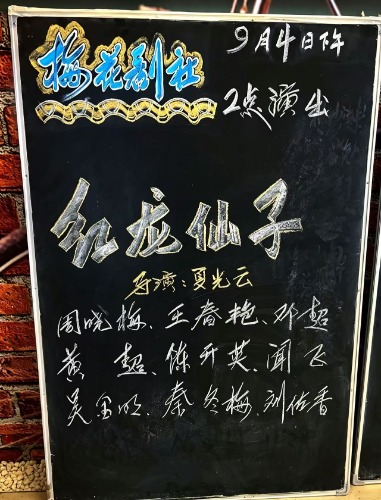 梅花剧社
9月4日下午
2点演出
红龙仙子
导演:夏光云
周晓梅、王春艳、邓超
黄超、陈开英、闻飞
吴金明、秦冬梅、刘佑香